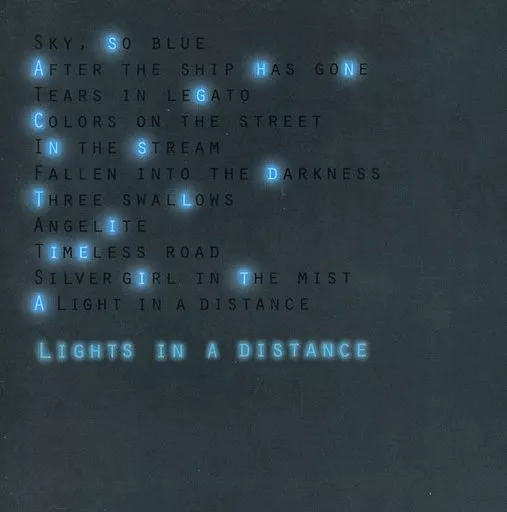 Sky, so blue
After the ship has gone
Tears in legato
Colors on the street
In the stream
Fallen into the darkness
Three swallows
Angelite
Timeless road
Silver girl in the mist
A Light in a distance
Lights in a distance